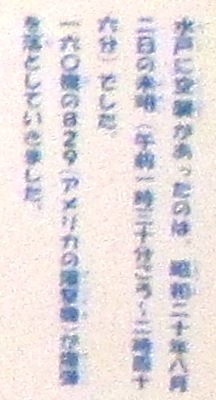 水戸に空襲があったのは、昭和二十年八月
二日の未明（午前一時三十分ごろ〜二時四十
六分）でした。
一六〇機のB29（アメリカの爆撃機）が
を落としていきました。